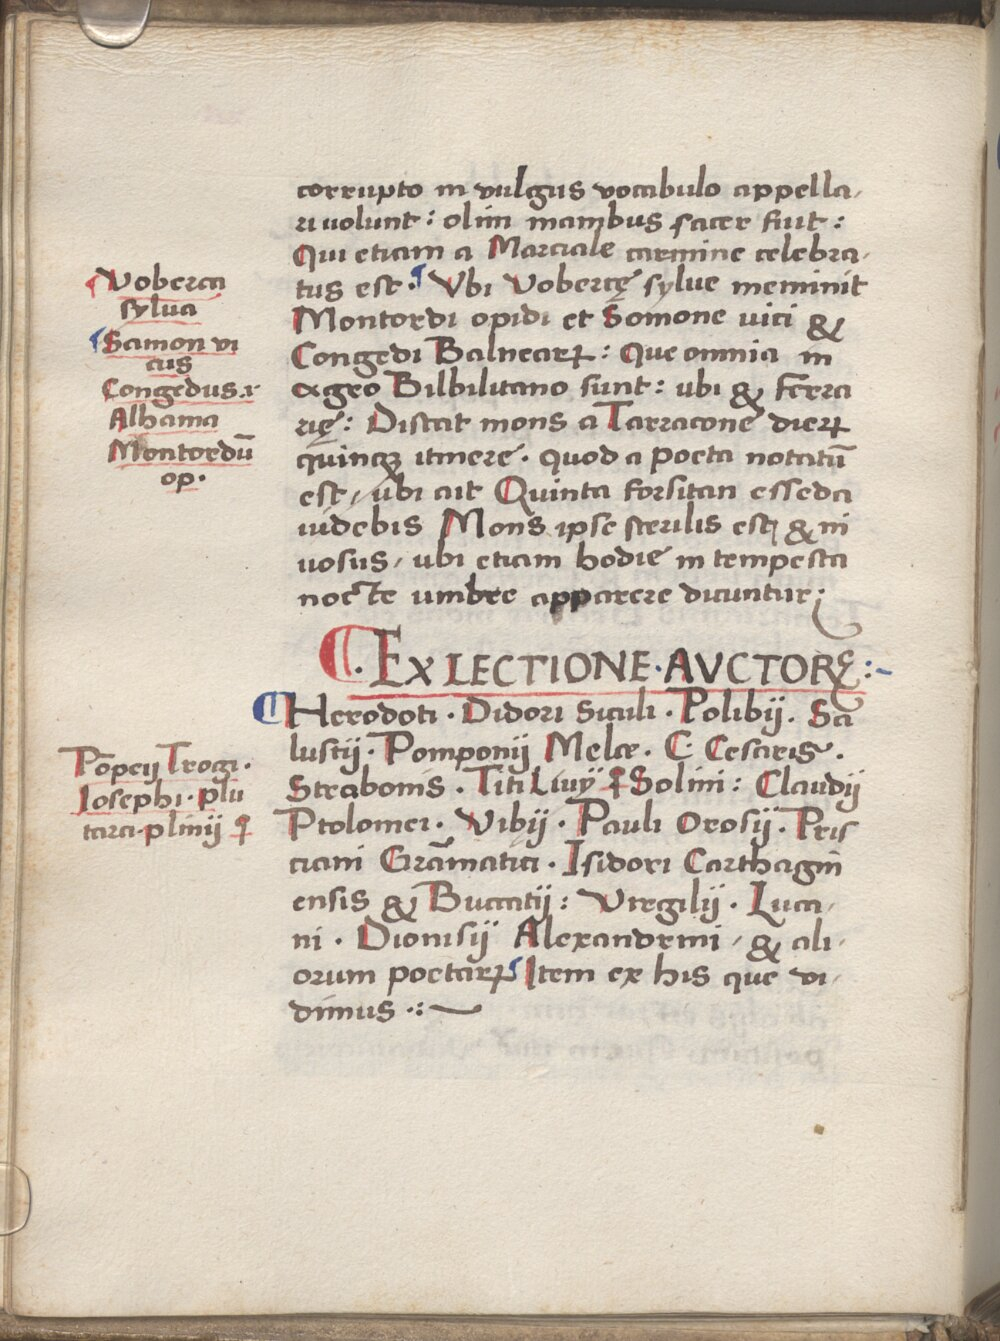 corrupto in vulgus vocabulo appella-
ri volunt: olim manibus sacer fuit:
Qui etiam a Marciale carmine celebra-
tus est. Vbi Vobercę sylue meminit
Montordi opidi et Somone uici &
Congedi Balnearꝝ: Que omnia in
agro Bilbilitano sunt: ubi & ferra
rię: Distat mons a Tarracone dierꝝ
quinqꝫ itinere. quod a poeta notatū
est, ubi ait Quinta forsitan esseda
uidebis Mons ipse sterilis est & ni
uosus, ubi etiam hodie in tempesta
nocte umbre apparere dicuntur;
Voberca
sylua
Samon vi
cus
Congedus.r
Alhama
Montordū
op.
Ex LECTIONE·AVCTORꝜ:-
Herodoti · Didori Siculi · Polibij · Sa
lustij · Pomponij Melæ · C. Cesaris ·
Strabonis · Titi Liuij Solini: Claudij
Ptolomei · Vibij · Pauli Orosij · Pris
ciani Grāmatici · Isidori Carthagin
ensis & Buccatij: Virgilij · Luca-
ni · Dionisij Alexandrini, & ali-
orum poetarꝝ Item ex his que vi-
dimus ·:
Pōpeij Trogi.
Iosephi · plu
tarci · plinij